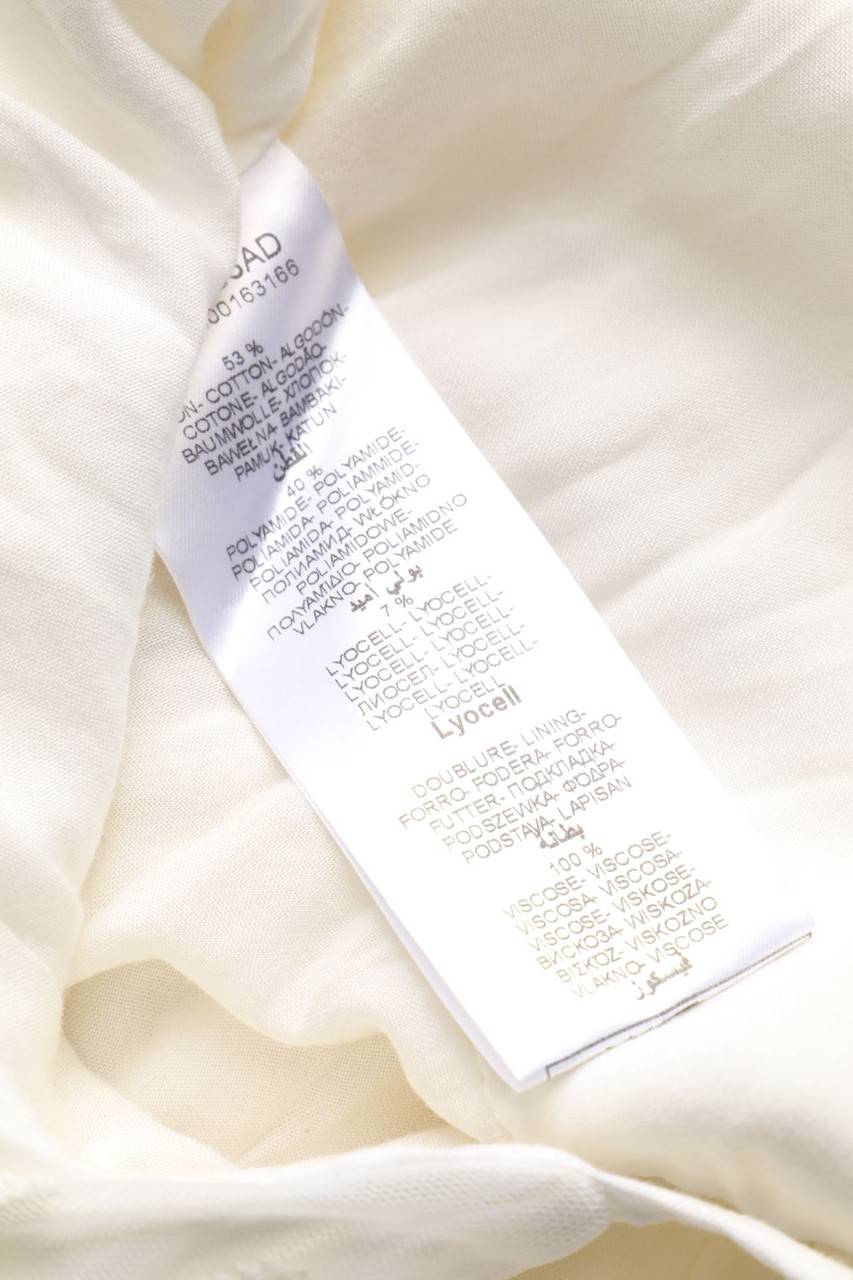 53 %
COTTON- ALGODÓN-
COTONE- ALGODÃO-
BAUMWOLLE- ХЛОПОК-
BAWEŁNA- BAMBAKI-
PAMUK- KATUN
القطن
40 %
POLYAMIDE- POLYAMIDE-
POLIAMIDA- POLIAMMIDE-
POLIAMIDA- POLYAMID-
ПОЛИАМИД- WŁÓKNO
POLIAMIDOWE-
ΠΟΛΥΑΜΙΔΙΟ- POLIAMIDNO
VLAKNO- POLYAMIDE
بولي أميد
7 %
LYOCELL- LYOCELL-
LYOCELL- LYOCELL-
LYOCELL- LYOCELL-
ЛИОСЕЛ- LYOCELL-
LYOCELL- LYOCELL-
LYOCELL
Lyocell
DOUBLURE- LINING-
FORRO- FODERA- FORRO-
FUTTER- ПОДКЛАДКА-
PODSZEWKA- ΦΌΔΡΑ-
PODSTAVA- LAPISAN
بطانة
100 %
VISCOSE- VISCOSE-
VISCOSA- VISCOSA-
VISCOSE- VISKOSE-
ВИСКОЗА- WISKOZA-
ΒΙΣΚΌΖ- VISKOZNO
VLAKNO- VISCOSE
فيسكوز